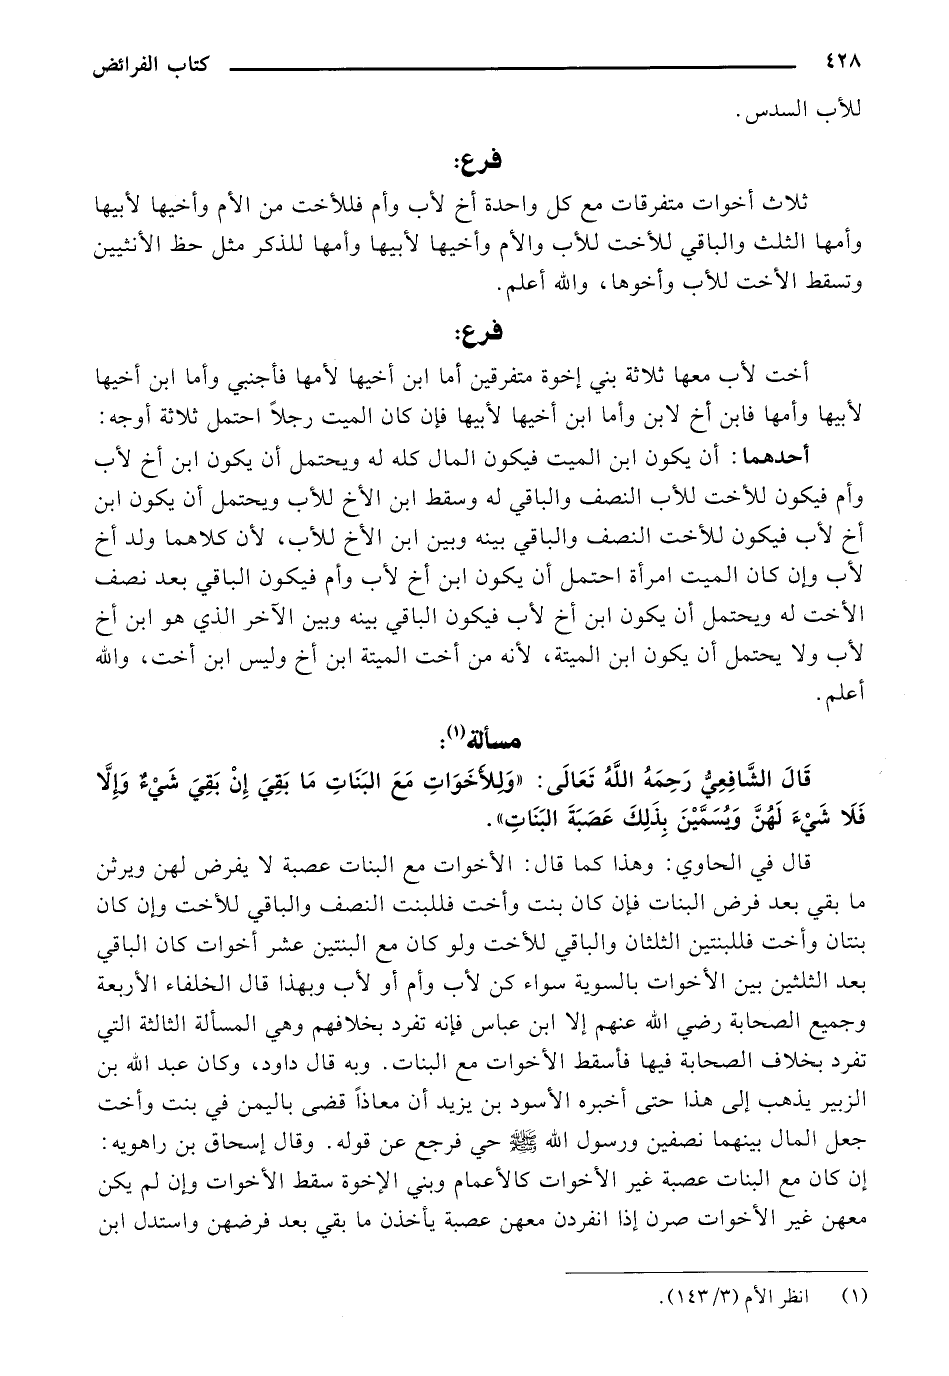 ٤٢٨ كتاب الفرائض
للأب السدس.
فرع:
ثلاث أخوات متفرقات مع كل واحدة أخ لأب وأم فللأخت من الأم وأخيها لأبيها
وأمها الثلث والباقي للأخت للأب والأم وأخيها لأبيها وأمها للذكر مثل حظ الأنثيين
وتسقط الأخت للأب وأخوها، والله أعلم.
فرع:
أخت لأب معها ثلاثة بني إخوة متفرقين أما ابن أخيها لأمها فأجنبي وأما ابن أخيها
لأبيها وأمها فابن أخ لابن وأما ابن أخيها لأبيها فإن كان الميت رجلاً احتمل ثلاثة أوجه:
أحدهما: أن يكون ابن الميت فيكون المال كله له ويحتمل أن يكون ابن أخ لأب
وأم فيكون للأخت للأب النصف والباقي له وسقط ابن الأخ للأب ويحتمل أن يكون ابن
أخ لأب فيكون للأخت النصف والباقي بينه وبين ابن الأخ للأب، لأن كلاهما ولد أخ
لأب وإن كان الميت امرأة احتمل أن يكون ابن أخ لأب وأم فيكون الباقي بعد نصف
الأخت له ويحتمل أن يكون ابن أخ لأب فيكون الباقي بينه وبين الآخر الذي هو ابن أخ
لأب ولا يحتمل أن يكون ابن الميتة، لأنه من أخت الميتة ابن أخ وليس ابن أخت، والله
أعلم.
مسألة(١):
قَالَ الشَّافِعِيُّ رَحِمَهُ اللَّهُ تَعَالَى: «وَلِلأَخَوَاتِ مَعَ البَنَاتِ مَا بَقِيَ إِنْ بَقِيَ شَيْءٌ وَإِلَّا
فَلَا شَيْءَ لَهُنَّ وَيُسَمَّيْنَ بِذَلِكَ عَصَبَةَ البَنَاتِ».
قال في الحاوي: وهذا كما قال: الأخوات مع البنات عصبة لا يفرض لهن ويرثن
ما بقي بعد فرض البنات فإن كان بنت وأخت فللبنت النصف والباقي للأخت وإن كان
بنتان وأخت فللبنتين الثلثان والباقي للأخت ولو كان مع البنتين عشر أخوات كان الباقي
بعد الثلثين بين الأخوات بالسوية سواء كن لأب وأم أو لأب وبهذا قال الخلفاء الأربعة
وجميع الصحابة رضي الله عنهم إلا ابن عباس فإنه تفرد بخلافهم وهي المسألة الثالثة التي
تفرد بخلاف الصحابة فيها فأسقط الأخوات مع البنات. وبه قال داود، وكان عبد الله بن
الزبير يذهب إلى هذا حتى أخبره الأسود بن يزيد أن معاذاً قضى باليمن في بنت وأخت
جعل المال بينهما نصفين ورسول الله ﷺ حي فرجع عن قوله. وقال إسحاق بن راهويه:
إن كان مع البنات عصبة غير الأخوات كالأعمام وبني الإخوة سقط الأخوات وإن لم يكن
معهن غير الأخوات صرن إذا انفردن معهن عصبة يأخذن ما بقي بعد فرضهن واستدل ابن
(١) انظر الأم (٣/ ١٤٣).